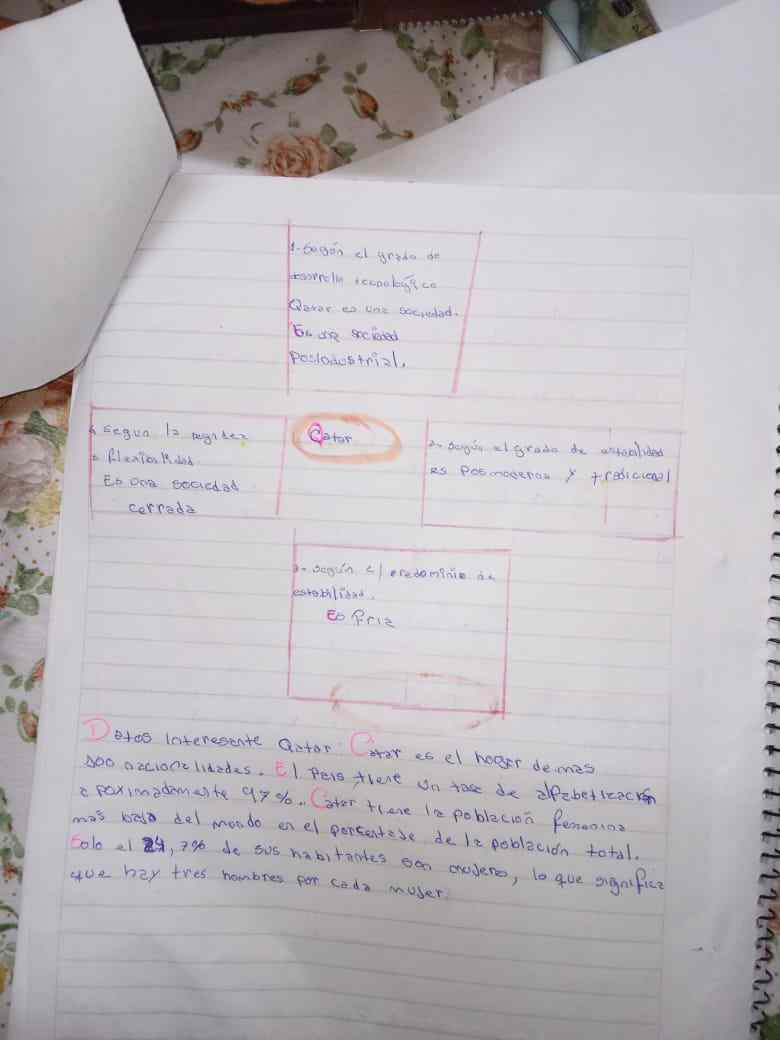 1- Según el grado de
desarrollo tecnológico
Qatar es una sociedad.
Es una sociedad
Posindustrial.
4 Segun la
o flexibilidad
Es una sociedad
cerrada
Qatar
2- según el grado de estabilidad
es Posmoderna y tradicional
3- según el predominio de
estabilidad.
Es fria
Datos Interesante Qatar: Catar es el hogar de mas
100 nacionalidades. El Pais tiene un tasa de alfabetización
aproximadamente 97%. Catar tiene la población femenina
mas baja del mundo en el porcentade de la población total.
Solo el 24,7% de sus habitantes son mujeres, lo que significa
que hay tres hombres por cada mujer.